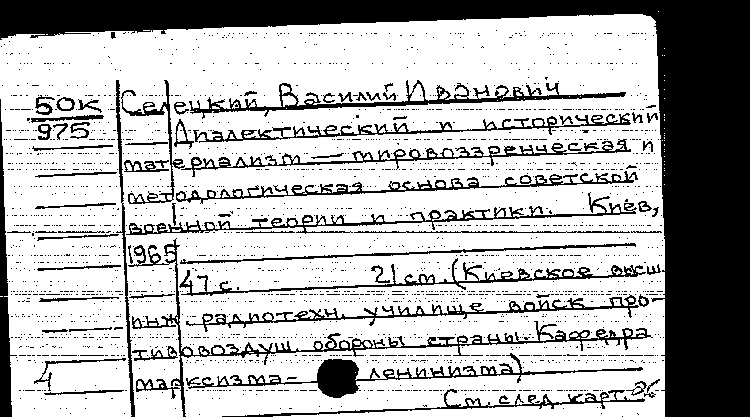 50к
975
Селецкий, Василий Иванович
Диалектический и исторический
материализм — мировоззренческая и
методологическая основа советской
военной теории и практики. Киев,
1965.
47 с. 21 см. (Киевское высш.
инж. радиотехн. училище войск про-
тивовоздуш. обороны страны. Кафедра
марксизма- ленинизма)
4
См. след. карт.